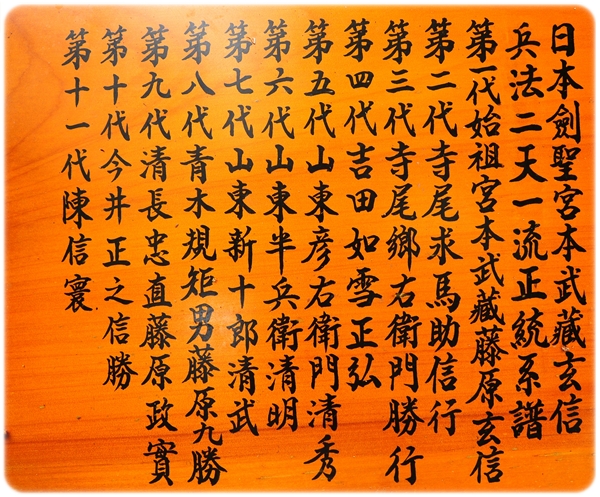 日本劍聖宮本武藏玄信
兵法二天一流正統系譜
第一代始祖宮本武藏藤原玄信
第二代寺尾求馬助信行
第三代寺尾鄉右衛門勝行
第四代吉田如雪正弘
第五代山東彥右衛門清秀
第六代山東半兵衛清明
第七代山東新十郎清武
第八代青木規矩男藤原九勝
第九代清長忠直藤原政實
第十代今井正之信勝
第十一代陳信寰